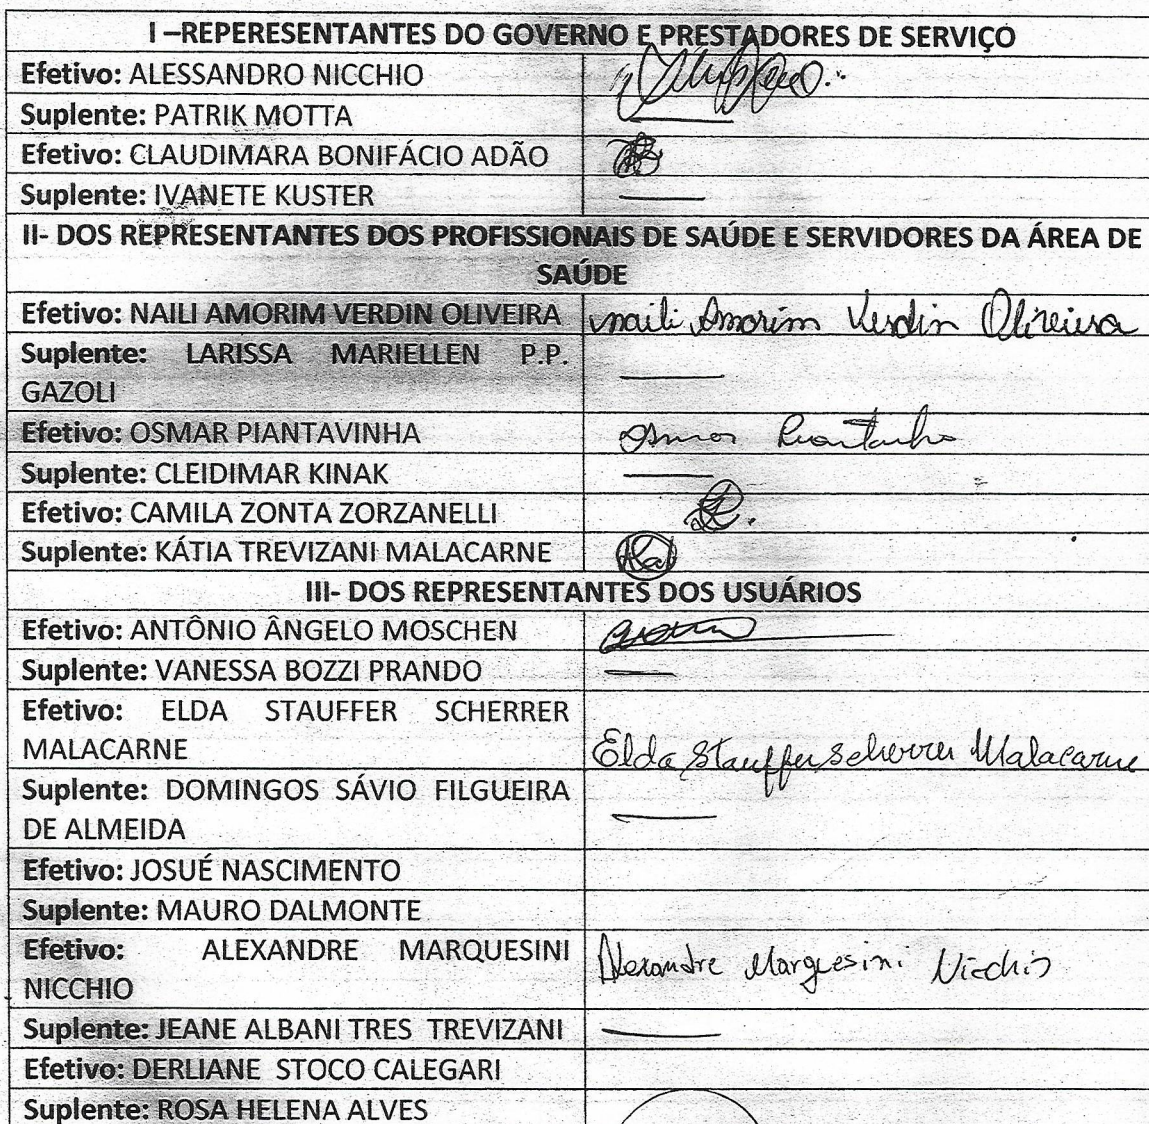 I –REPERESENTANTES DO GOVERNO E PRESTADORES DE SERVIÇO
Efetivo: ALESSANDRO NICCHIO
Suplente: PATRIK MOTTA
Efetivo: CLAUDIMARA BONIFÁCIO ADÃO
Suplente: IVANETE KUSTER
II- DOS REPRESENTANTES DOS PROFISSIONAIS DE SAÚDE E SERVIDORES DA ÁREA DE
SAÚDE
Efetivo: NAILI AMORIM VERDIN OLIVEIRA Naili Amorim Verdin Oliveira
Suplente: LARISSA MARIELLEN P.P.
GAZOLI
Efetivo: OSMAR PIANTAVINHA Osmar
Suplente: CLEIDIMAR KINAK
Efetivo: CAMILA ZONTA ZORZANELLI
Suplente: KÁTIA TREVIZANI MALACARNE
III- DOS REPRESENTANTES DOS USUÁRIOS
Efetivo: ANTÔNIO ÂNGELO MOSCHEN
Suplente: VANESSA BOZZI PRANDO
Efetivo: ELDA STAUFFER SCHERRER
MALACARNE Elda Stauffer Scherrer Malacarne
Suplente: DOMINGOS SÁVIO FILGUEIRA
DE ALMEIDA
Efetivo: JOSUÉ NASCIMENTO
Suplente: MAURO DALMONTE
Efetivo: ALEXANDRE MARQUESINI Alexandre Marquesini Nicchio
NICCHIO
Suplente: JEANE ALBANI TRES TREVIZANI
Efetivo: DERLIANE STOCO CALEGARI
Suplente: ROSA HELENA ALVES